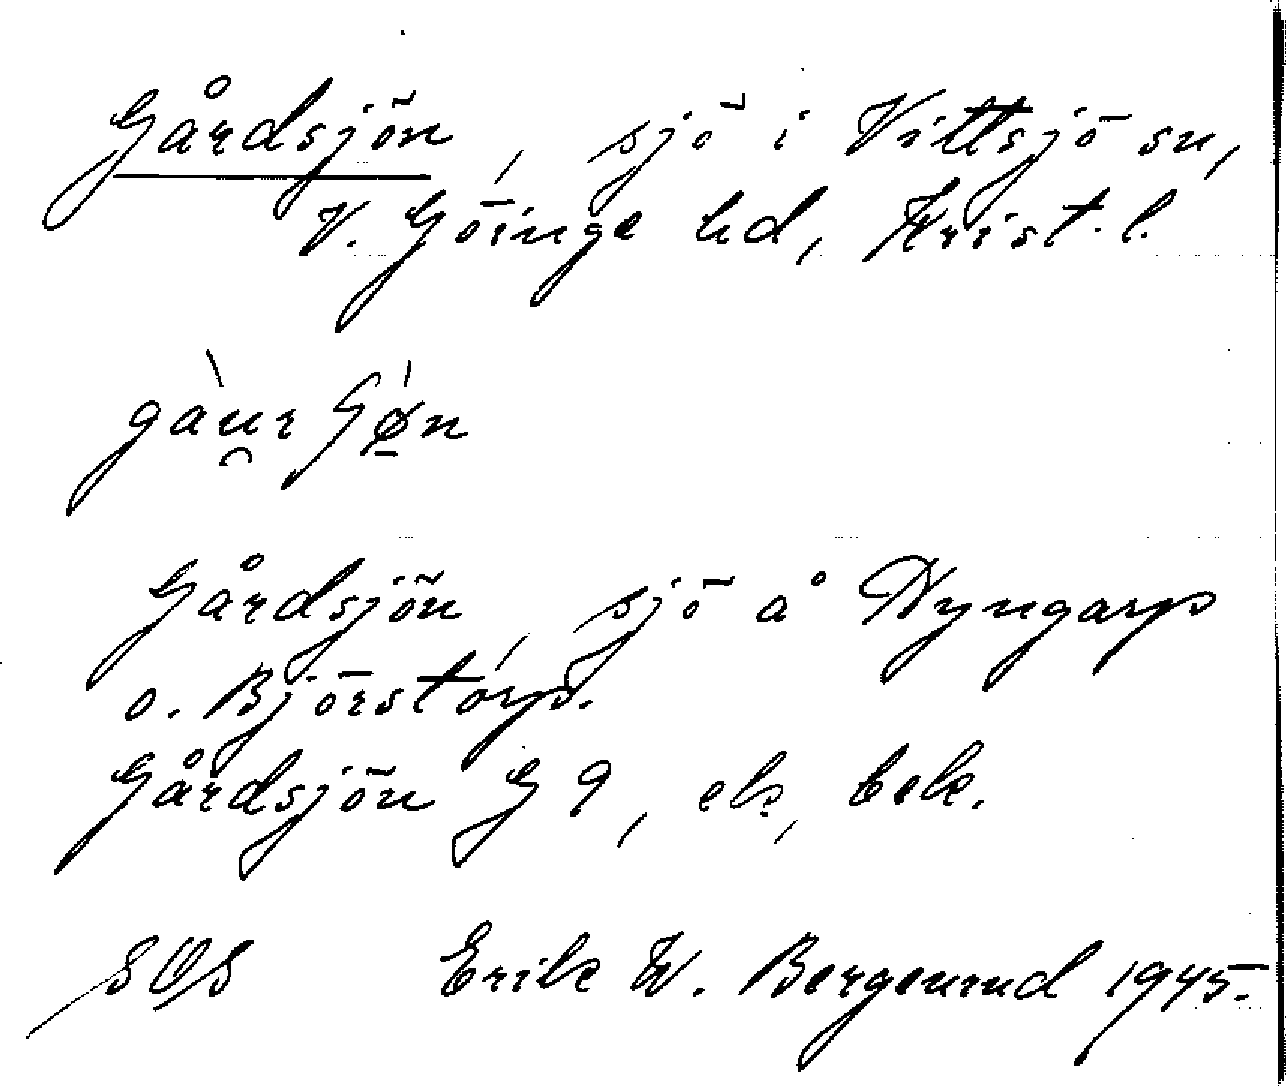 Gårdsjön, sjö i Vittsjö sn,
V. Göinge hd, Krist. l.
Gårdsjön, sjö å Nyngarp
o. Björstorp.
Gårdsjön G 9, ek, bek.
SOS Erik W. Bergenrud 1945.